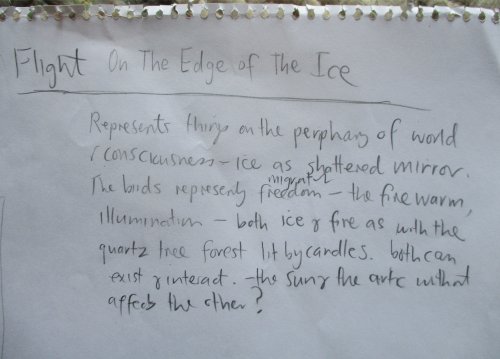 Flight On The Edge of The Ice
Represents things on the periphary of world
/ consciusness - ice as shattered mirror.
migrat
The birds represents freedom - the fire warm,
illumination - both ice & fire as with the
quartz tree forest lit by candles. both can
exist & interact. - the sun & the artic without
affects the other?